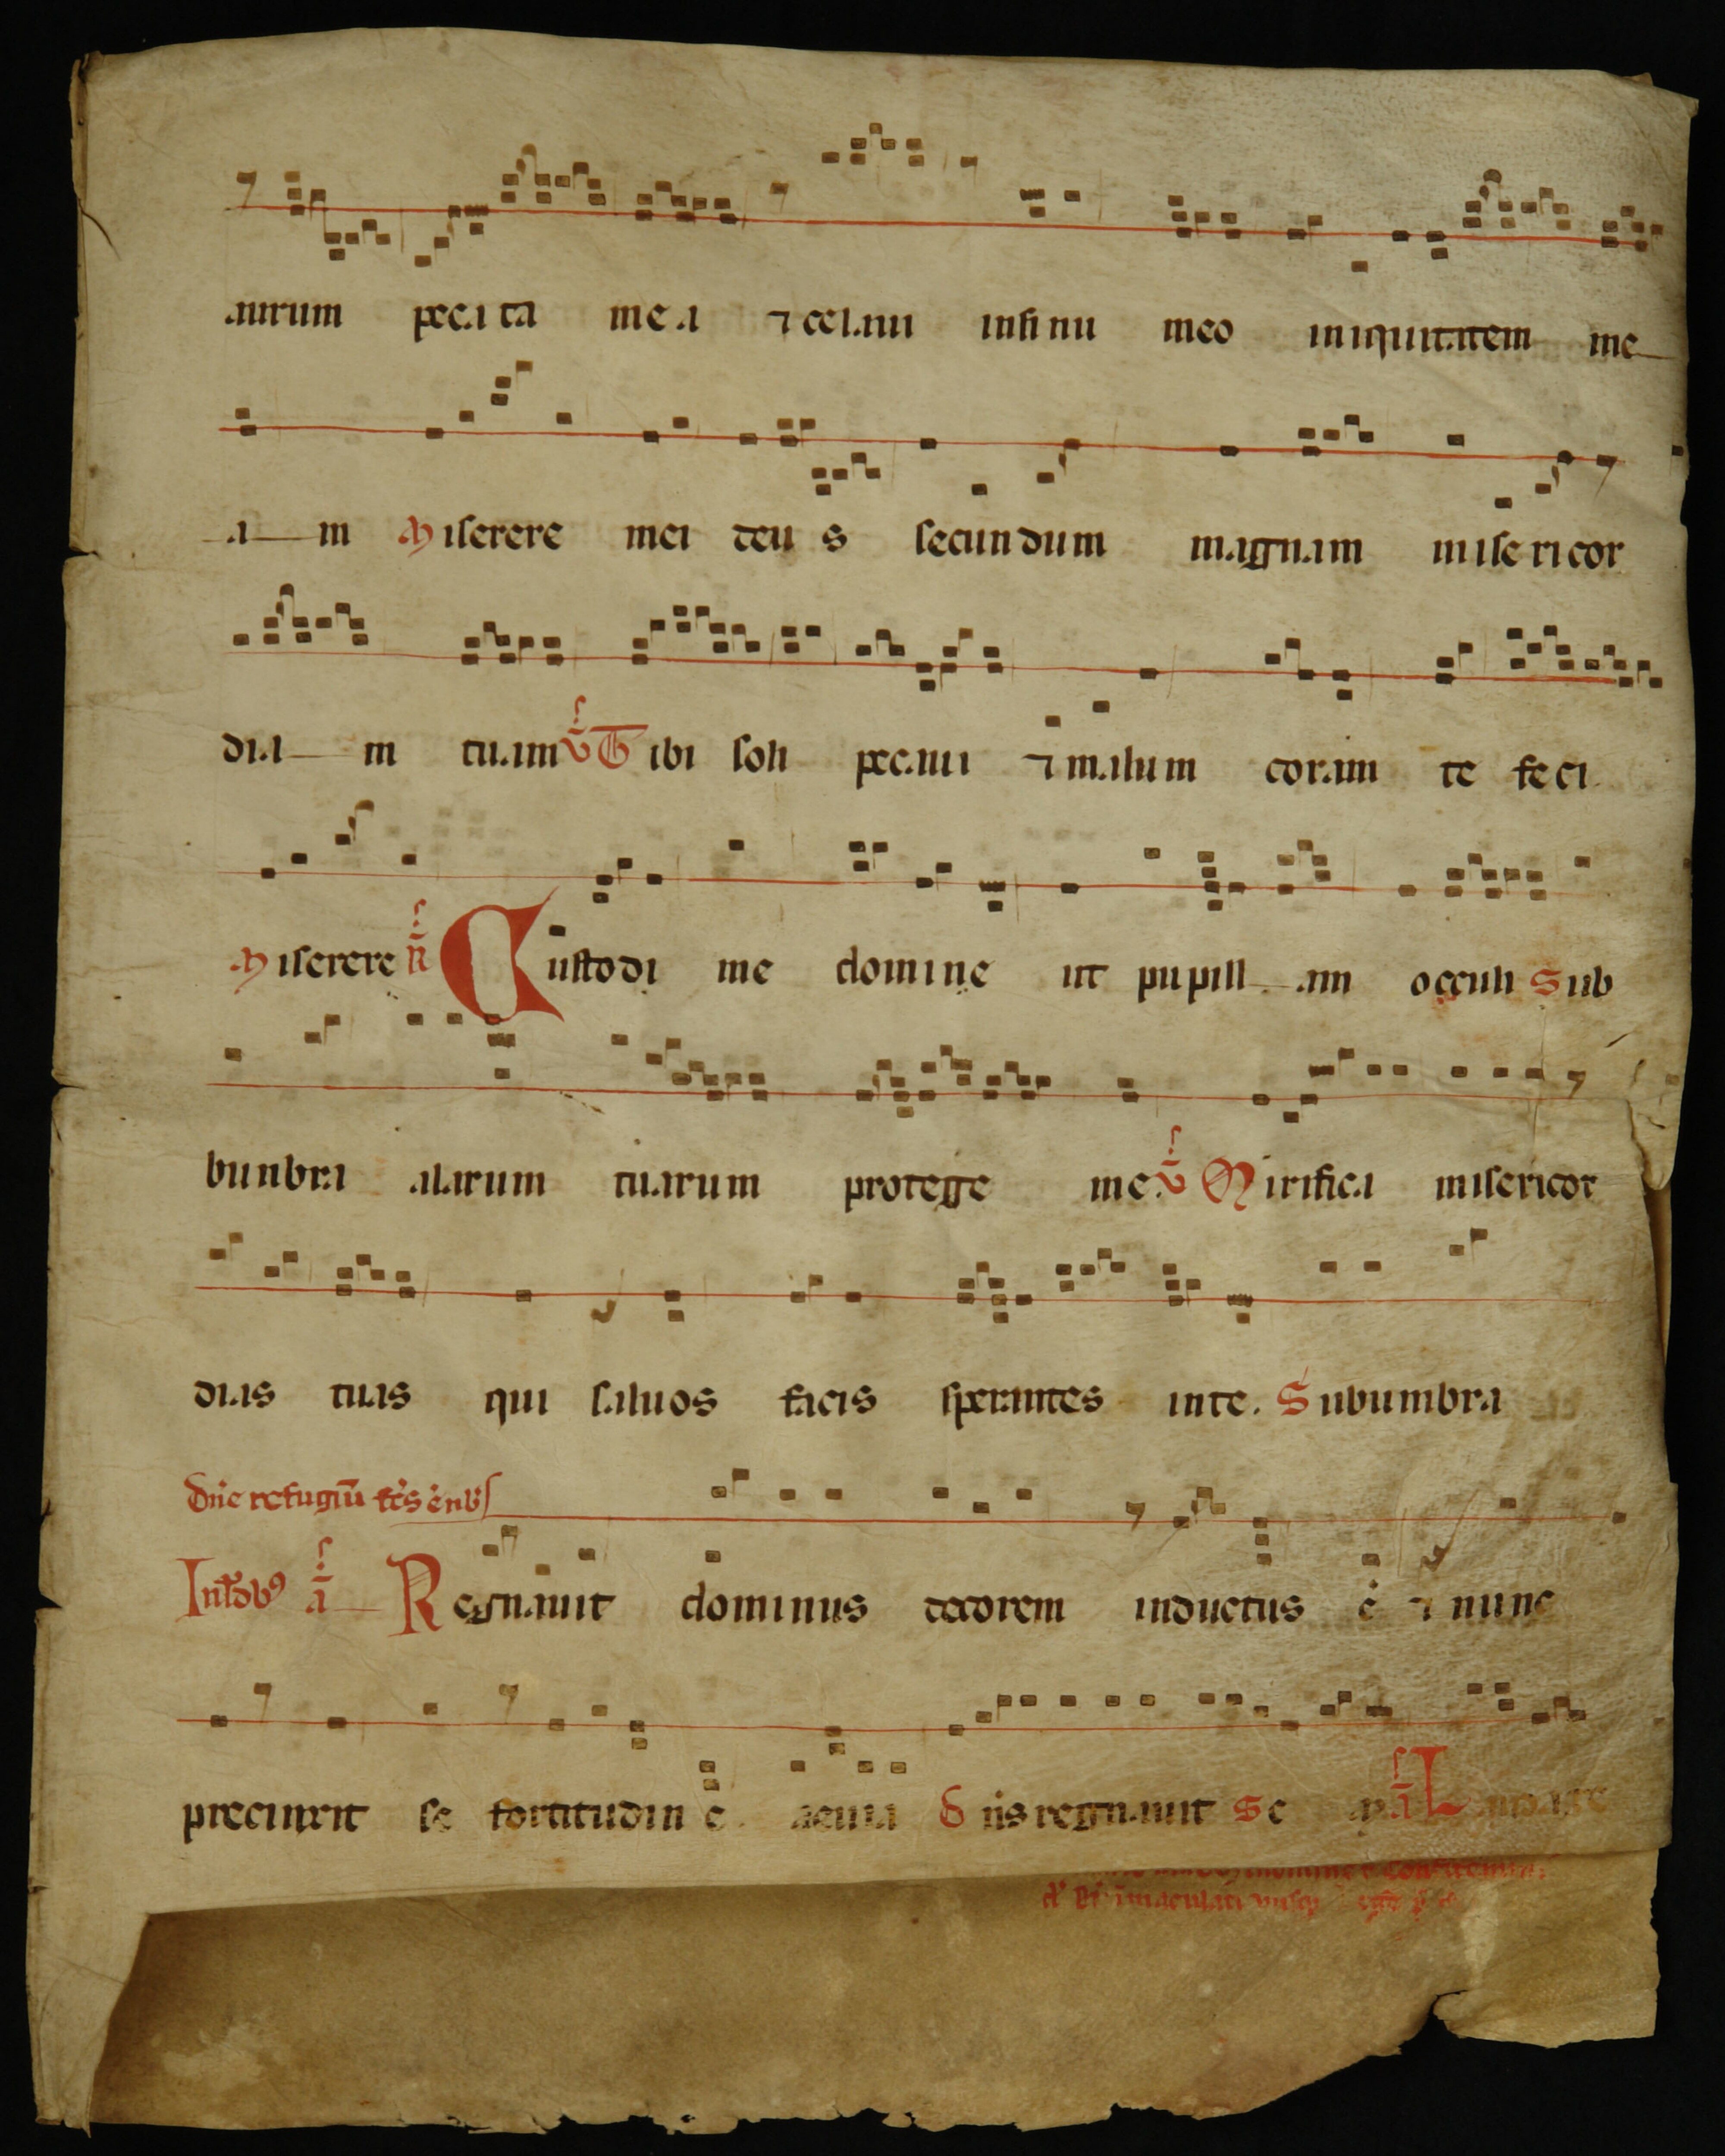 auirum pecata mea ⁊ celaui insinu meo iniquitatem me
a m Miserere mei deus secundum magnam misericor
diam tuam ℣ Tibi soli pecaui ⁊ malum coram te feci
Miserere R̄ Custodi me domine ut pupillam occuli Sub
bunbra alarum tuarum protege me ℣ Mirifica misericor
dias tuas qui saluos facis sperantes inte. Subumbra
Dn̄e refugiū
a Regnauit dominus decorem inductus ē ⁊ nunc
precinxit se fortitudine Dn̄s regnauit Se a L
īmaculati